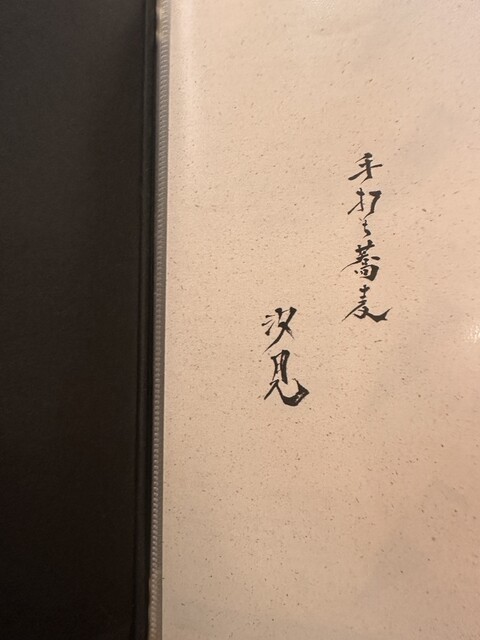 手打ち蕎麦
汐見